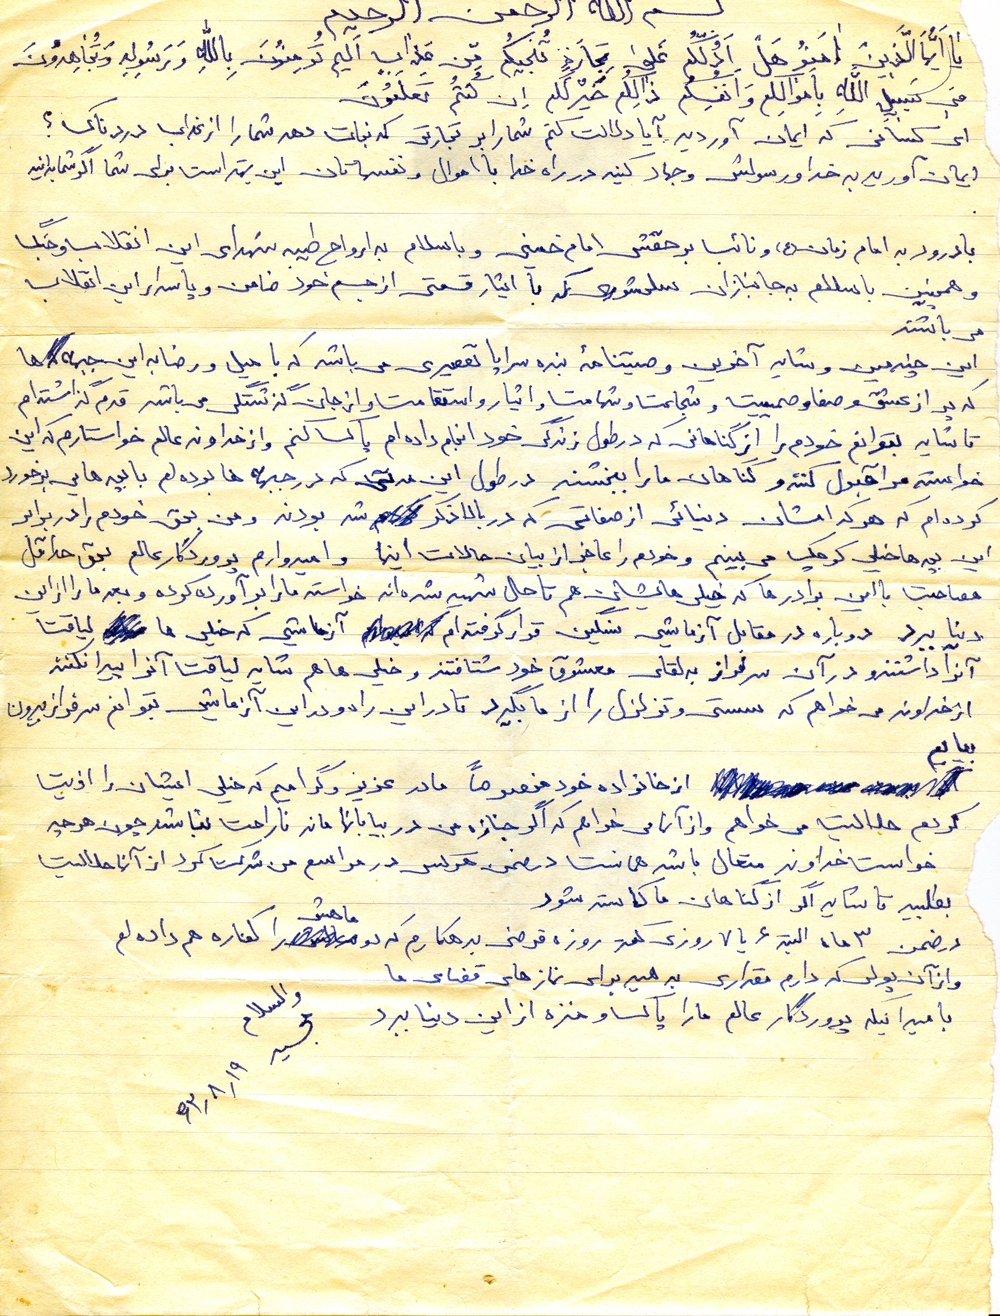 بسم الله الرحمن الرحیم
یَا اَیُّهَا الَّذینَ اٰمَنُو هَلْ اَدُلُّکُم عَلیٰ تِجارَةٍ تُنْجیکُم مِّن عَذابٍ اَلیم تُومِنُونَ بِاللهِ وَ رَسُولِهِ وَ تُجاهِدُونَ
فی سَبیلِ اللهِ بِاَموالِکُم وَ اَنفُسِکُم ذٰالِکُم خَیْرٌ لَکُم اِن کُنتُم تَعلَمُونَ
ای کسانی که ایمان آوردید آیا دلالت کنم شما را بر تجارتی که نجات دهد شما را از عذاب دردناک؟
ایمان آورید به خدا و رسولش و جهاد کنید در راه خدا با اموال و نفسهاتان این بهتر است برای شما اگر شما بدانید
با درود به امام زمان (عج) و نائب بر حقش امام خمینی و با سلام به ارواح طیبه شهدای این انقلاب و جنگ
و همچنین با سلام به جانبازان سلحشوری که با ایثار قسمتی از جسم خود ضامن و پاسدار این انقلاب
می باشند
این چندمین و شاید آخرین وصیتنامهٔ بنده سراپا تقصیری می باشد که با میل و رضا به این جبهه ها
که پر از عشق و صفا و صمیمیت و شجاعت و شهامت و ایثار و استقامت و از جان گذشتگی می باشد قدم گذاشته ام
تا شاید بتوانم خودم را از گناهانی که در طول زندگی خود انجام داده ام پاک کنم و از خداوند عالم خواستارم که این
خواسته مرا قبول کند و گناهان ما را ببخشند در طول این مدتی که در جبهه ها بوده ام با بچه هایی برخورد
کرده ام که هر کدامشان دنیائی از صفاتی که در بالا ذکر شد بودند و من بحق خودم را در برابر
این بچه ها خیلی کوچک می بینم و خودم را عاجز از بیان حالات اینها و امیدوارم پروردگار عالم بحق حداقل
مصاحبت با این برادرها که خیلی هایشان هم تا حال شهید شده اند خواسته ما را برآورده کرده و بعد ما را از این
دنیا ببرد دوباره در مقابل آزمایشی سنگین قرار گرفته ام آزمایشی که خیلی ها لیاقت
آنرا داشتند و در آن سرفراز به لقای معشوق خود شتافتند و خیلی ها هم شاید لیاقت آنرا پیدا نکنند
از خداوند می خواهم که سستی و تزلزل را از ما بگیرد تا در این راه و در این آزمایش بتوانم سرفراز بیرون
بیایم
از خانواده خود مخصوصاً مادر عزیز و گرامیم که خیلی ایشان را اذیت
کردم حلالیت می خواهم و از آنها می خواهم که اگر جنازه من در بیابانها ماند ناراحت نباشند چون هر چه
خواست خداوند متعال باشد همانست در ضمن هر کس در مراسم من شرکت کرد از آنها حلالیت
بطلبید تا شاید اگر از گناهان ما کاسته شود
در ضمن ۳ ماه البته ۶ یا ۷ روزی کمتر روزه قرضی بدهکارم که دو ماهش را کفاره هم داده ام
و از آن پولی که دارم مقداری بدهید برای نمازهای قضای ما
با امید اینکه پروردگار عالم ما را پاک و منزه از این دنیا ببرد
والسلام
۶۳/۸/۱۹